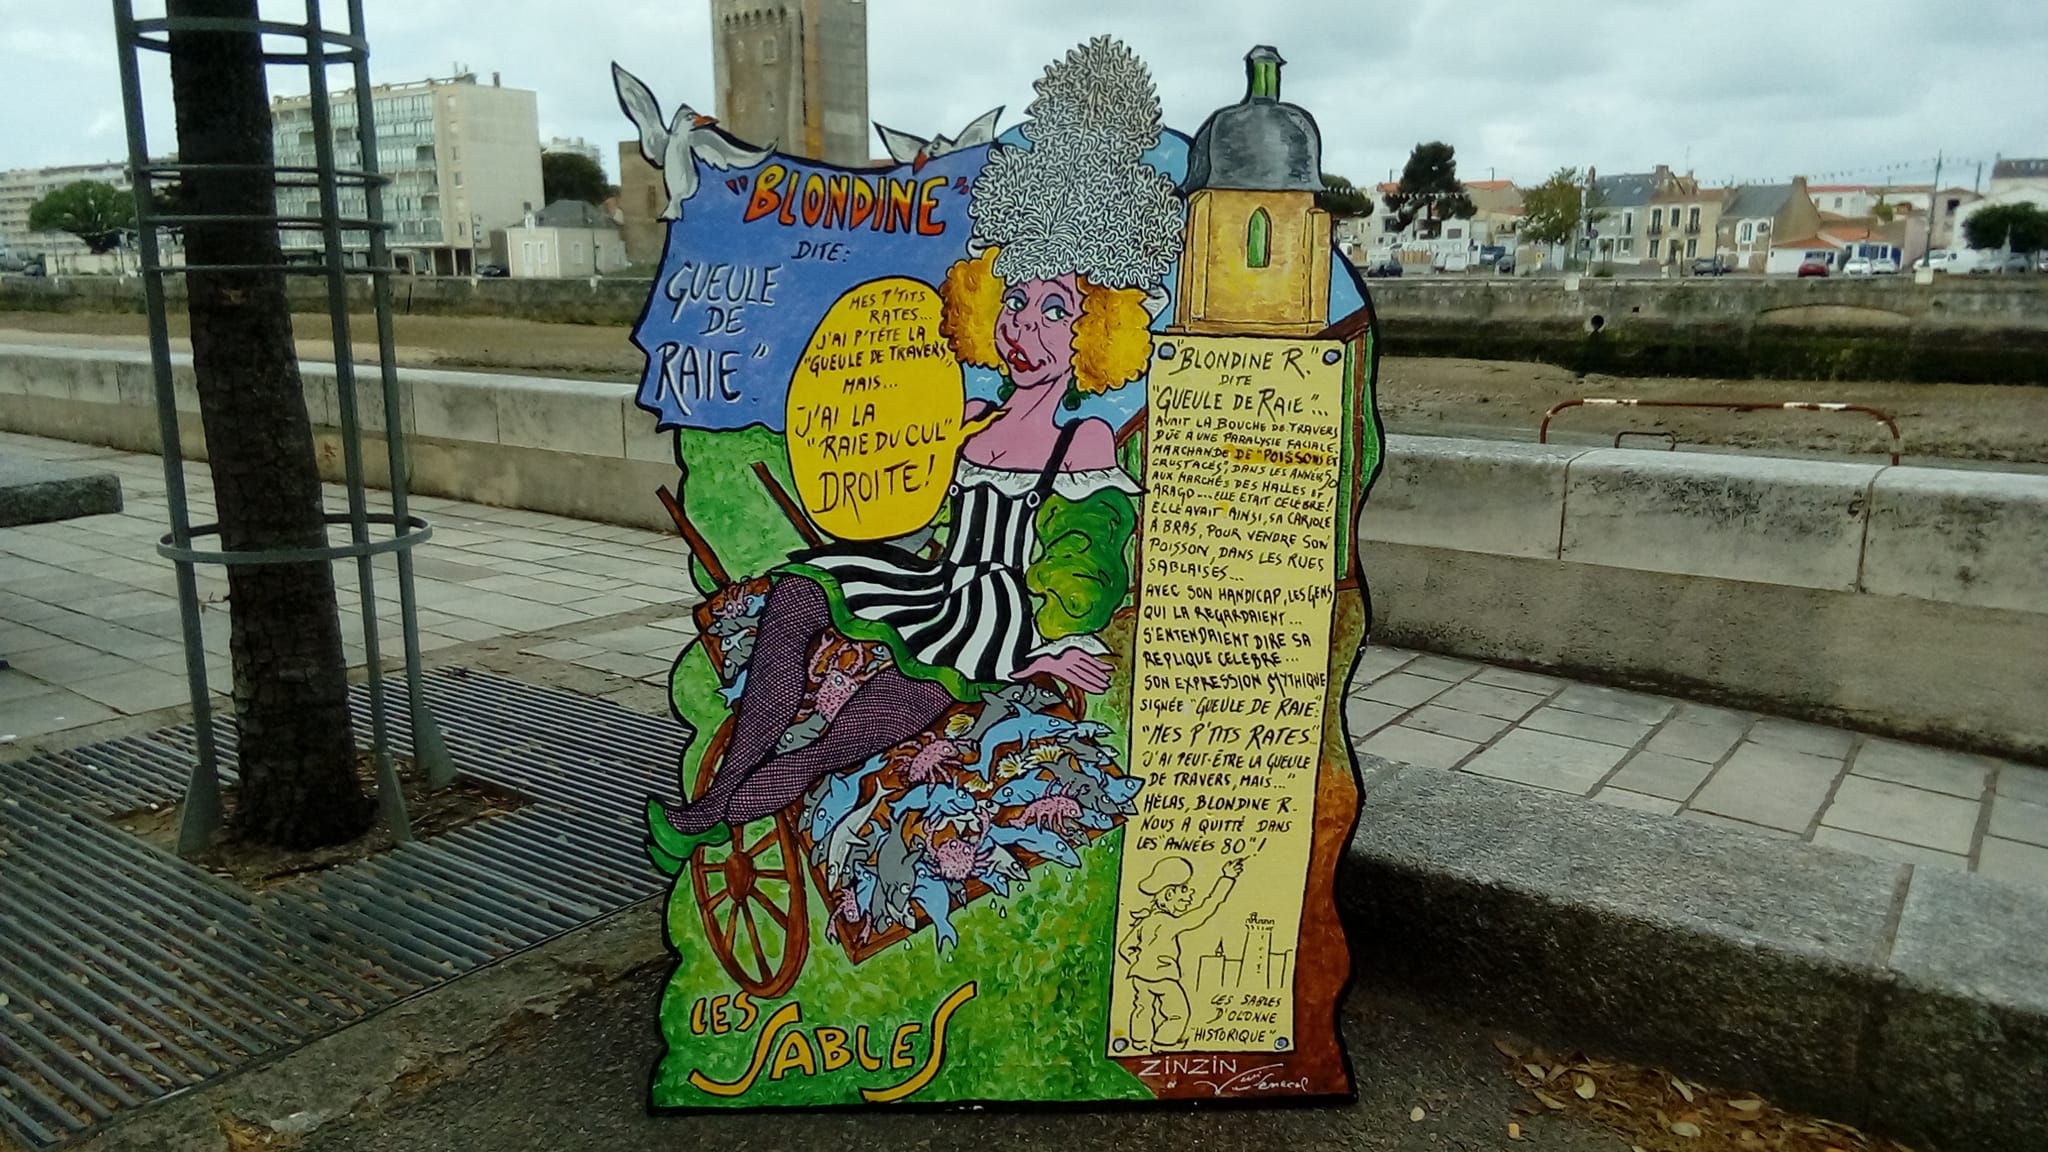 "BLONDINE"
DITE:
"GUEULE
DE
RAIE".
MES P'TITS
RATES...
J'AI P'TÊTE LA
"GUEULE DE TRAVERS",
MAIS...
J'AI LA
"RAIE DU CUL"
DROITE!
"BLONDINE R."
DITE
"GUEULE DE RAIE"...
AVAIT LA BOUCHE DE TRAVERS
DÛE A UNE PARALYSIE FACIALE.
MARCHANDE DE "POISSONS ET
CRUSTACÉS", DANS LES ANNÉES 50
AUX MARCHÉS DES HALLES ET
ARAGO... ELLE ETAIT CÉLÈBRE!
ELLE AVAIT AINSI, SA CARIOLE
À BRAS, POUR VENDRE SON
POISSON, DANS LES RUES
SABLAISES...
AVEC SON HANDICAP, LES GENS
QUI LA REGARDAIENT...
S'ENTENDAIENT DIRE SA
REPLIQUE CELEBRE...
SON EXPRESSION MYTHIQUE
SIGNÉE "GUEULE DE RAIE":
"MES P'TITS RATES"
"J'AI PEUT-ÊTRE LA GUEULE
DE TRAVERS, MAIS..."
HÉLAS, BLONDINE R.
NOUS A QUITTÉ DANS
LES "ANNÉES 80"!
LES SABLES
D'OLONNE
"HISTORIQUE"
LES
SABLES
ZINZIN